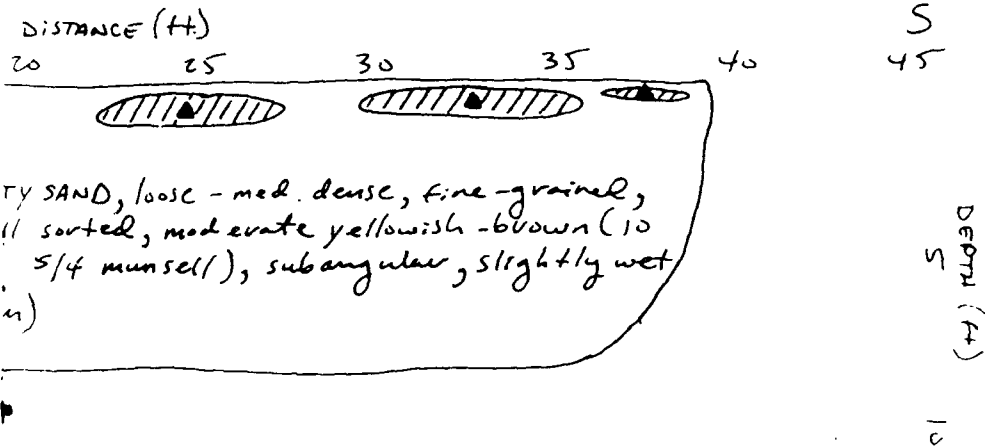 DISTANCE (ft.)
S
20 25 30 35 40 45
TY SAND, loose - med. dense, fine-grained,
ll sorted, moderate yellowish-brown (10
5/4 munsell), subangular, slightly wet
n)
DEPTH (ft)
5
10